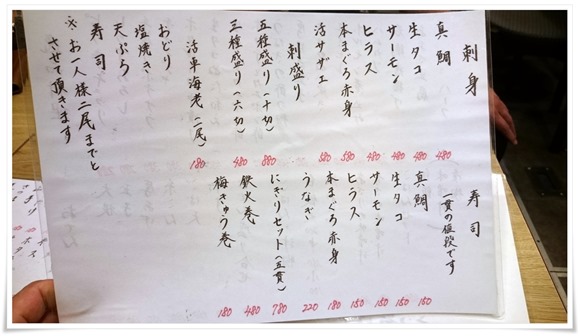 刺身
真鯛 480
生タコ 480
サーモン 480
ヒラス 480
本まぐろ赤身 580
活サザエ 580
刺盛り
五種盛り(十切) 880
三種盛り(六切) 480
活車海老(二尾) 180
おどり
塩焼き
天ぷら
寿司
※お一人様二尾までと
させて頂きます
寿司
一貫の値段です
真鯛 150
生タコ 150
サーモン 150
ヒラス 150
本まぐろ赤身 180
うなぎ 220
にぎりセット(五貫) 780
鉄火巻 480
梅きゅう巻 180